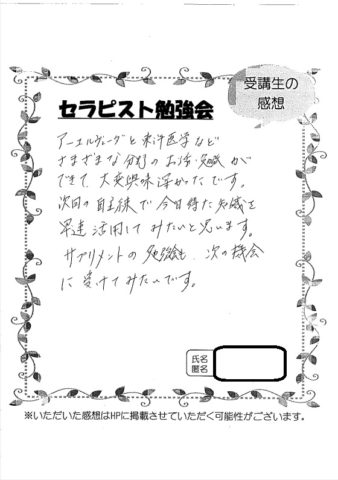 受講生の
感想
セラピスト勉強会
アーユルヴェーダと東洋医学など
さまざまな分野のお話・知識が
できて、大変興味深かったです。
次回の自主練で今日得た知識を
早速活用してみたいと思います。
サプリメントの勉強会も、次の機会
に受けてみたいです。
氏名
匿名
※いただいた感想はHPに掲載させていただく可能性がございます。